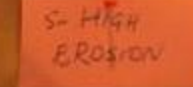 5- HIGH
EROSION